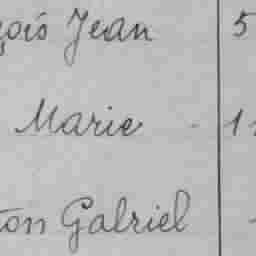 çois Jean 5
Marie - 1
ton Gabriel -